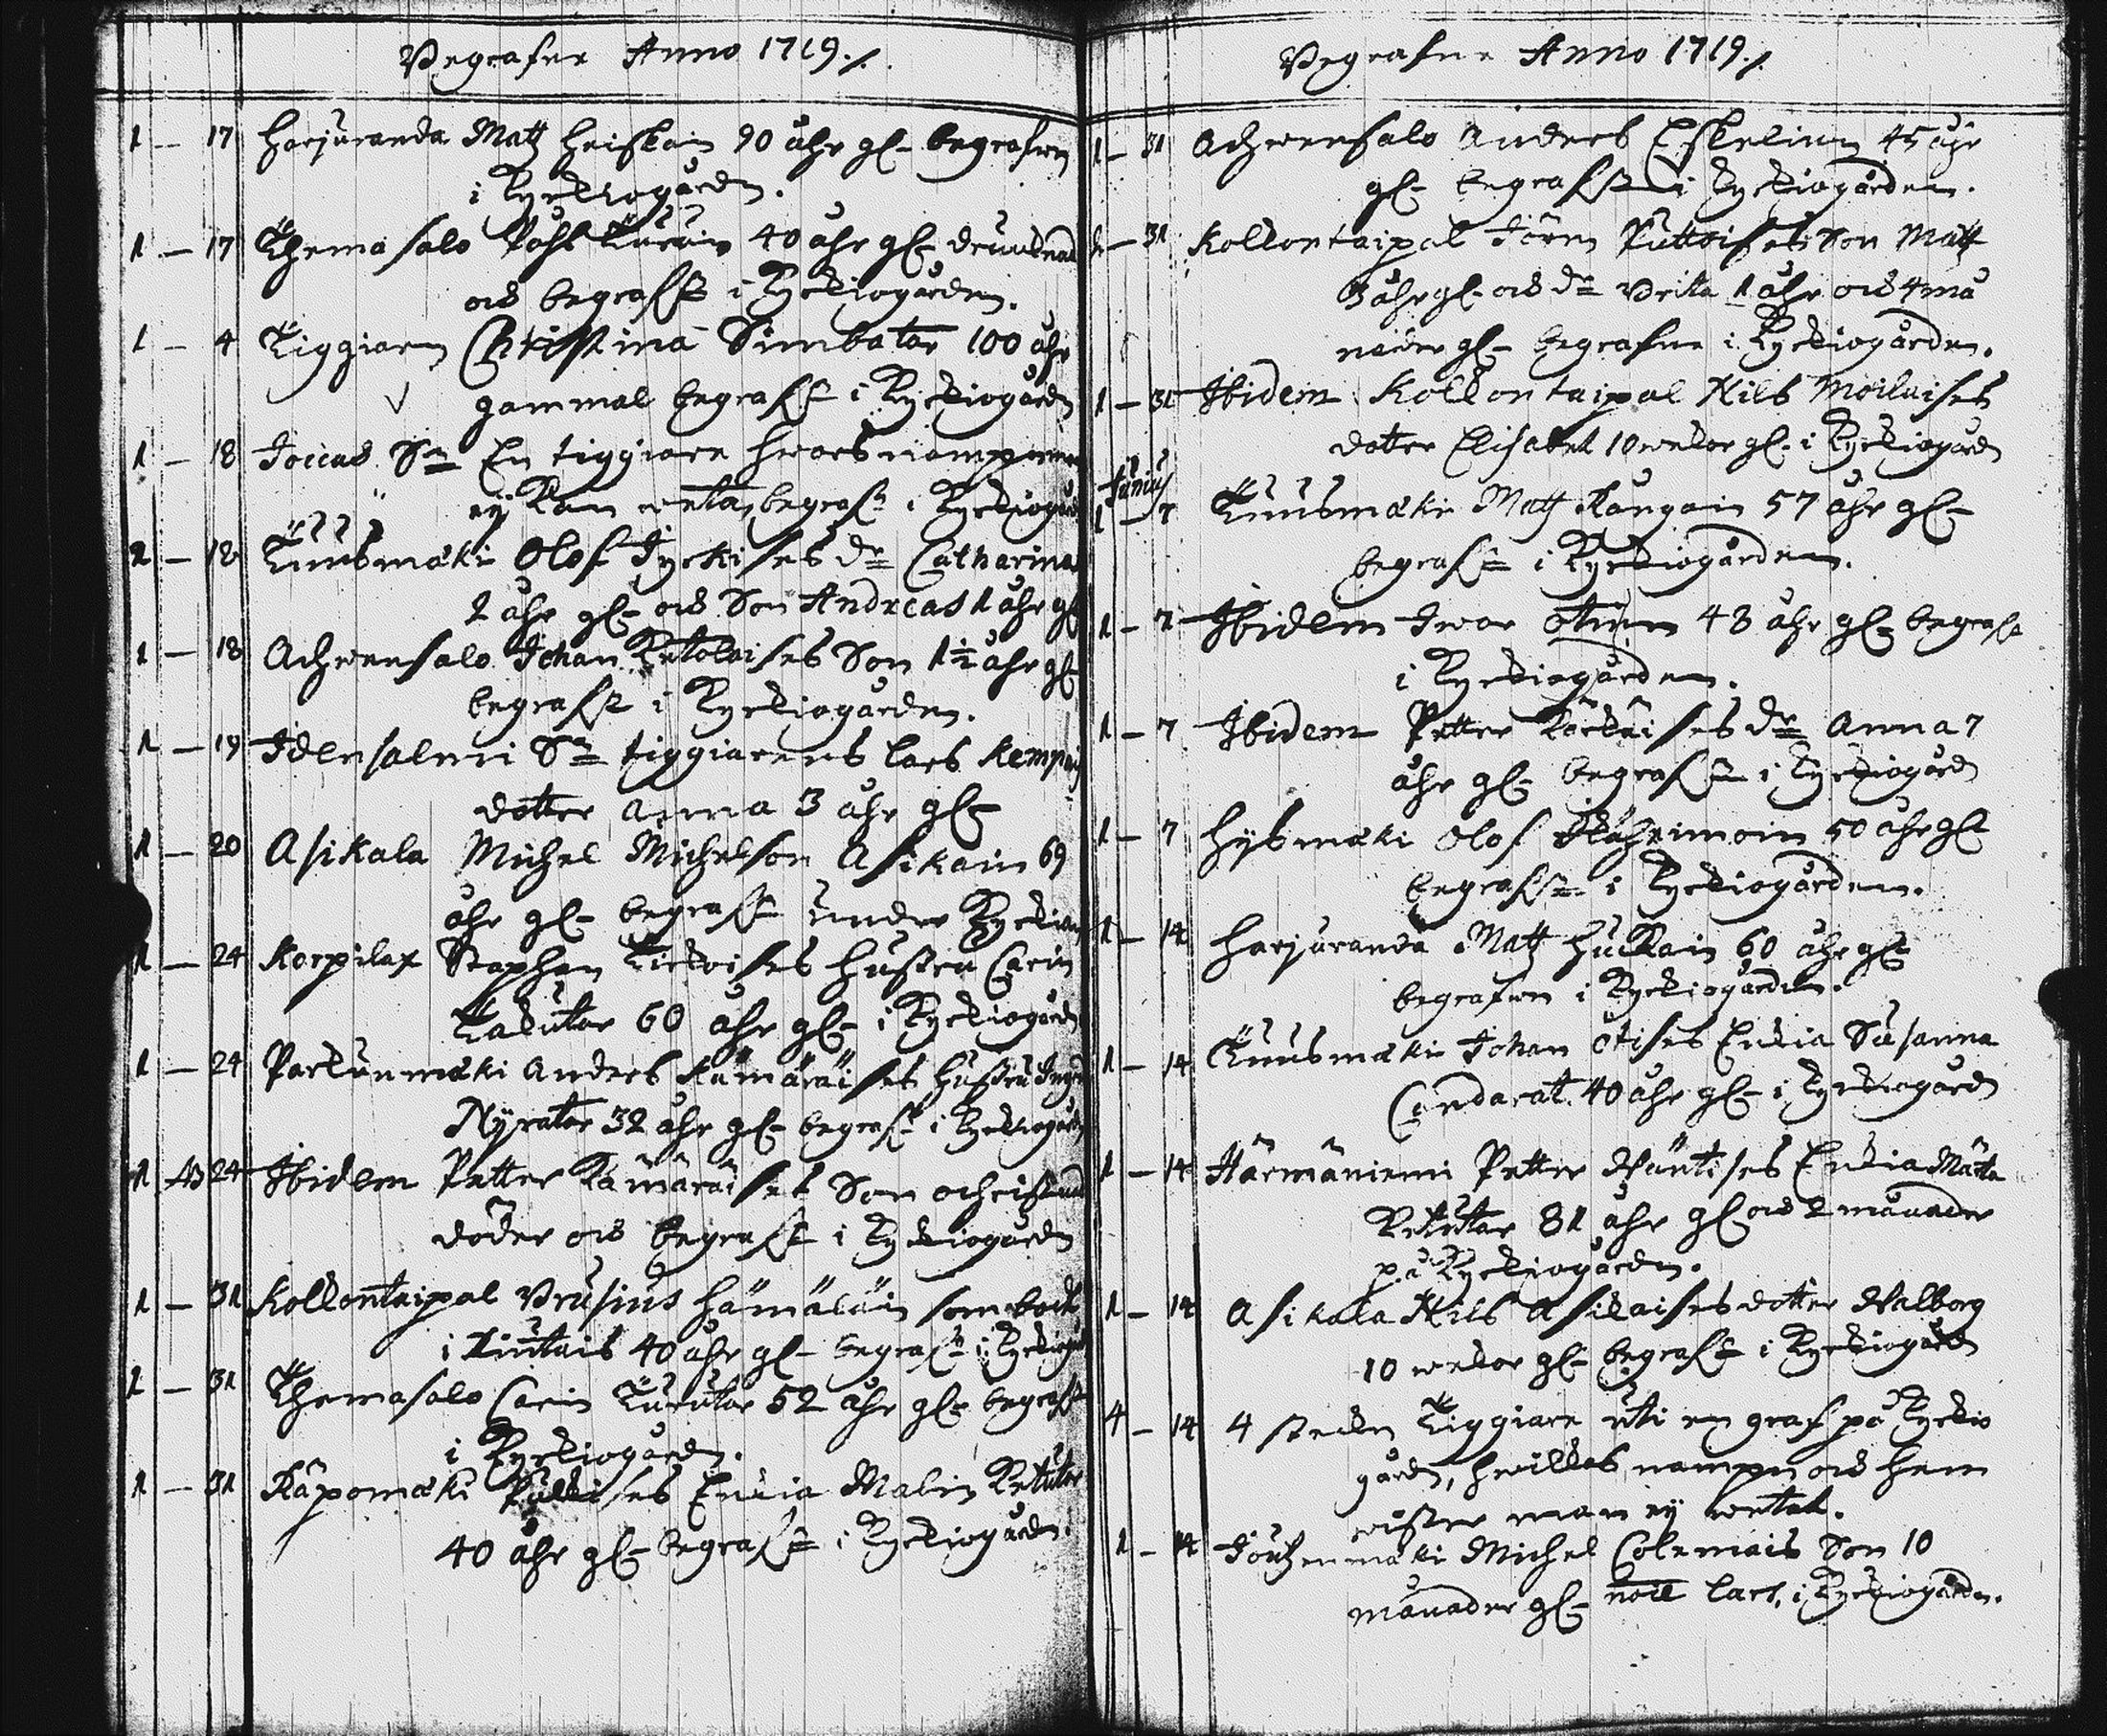 Begrafne Anno 1719./.
1 — 17 Harjuranda Matz Heiskain 90 åhr gl- begrafwen
i Kyrckiogården.
1 — 17 Thermasalo Påhl Turain 40 åhr gl- drunknade
och begrafs i Kyrckiogården.
1 — 4 Tiggiaren Christina Simbatar 100 åhr
gammal begrafn i Kyrckiogården
1 — 18 Joicas Sn En tiggiare hwars nampn man
ey kan weta, begrafn i Kyrckiogård
2 — 18 Tuusmäki Olof Jyrkises dr Catharina
2 åhr gl- och Son Andreas 1 åhr gl
1 — 18 Achwensalo Johan Ketolaises Son 1½ åhr gl-
begrafn i Kyrckiogården.
1 — 19 Idensalmi Sn tiggiarens Lars Kempais
dotter Anna 3 åhr gl-
1 — 20 Asikala Michel Michelson Asikain 69
åhr gl- begrafn under Kyrckian
1 — 24 Korpilax Staphan Kirkoises hustru Carin
60 åhr gl- i Kyrckiogården
1 — 24 Parkunmäki Anders Kämäräises hustru
Nyratar 32 åhr gl- begrafn i Kyrckiogården
1 — 24 Ibidem Petter Kämäräises Son ochristnad
döder och begrafn i Kyrckiogården
1 — 31 Kollontaipal Brusius Hämäläin som bodt
i 40 åhr gl- begrafn i Kyrckiogård
1 — 31 Thermasalo Carin Turutar 52 åhr gl- begrafn
i Kyrckiogården.
1 — 31 Käpomäki Pulkises Enkia Malin Ketutar
40 åhr gl- begrafn i Kyrckiogården.
Begrafne Anno 1719./.
1 — 31 Achwensalo Anders Eskelinn 45 åhr
gl- begrafn i Kyrckiogården.
2 — 31 Kollontaipal Jören Puttoises Son Matz
3 åhr gl- och dr Brita 1 åhr och 4 må
nader gl- begrafne i Kyrckiogården.
1 — 31 Ibidem Kollontaipal Nils Moilaises
dotter Elisabet 10 wekor gl- i Kyrckiogården
Junius
1 — 7 Tuusmäki Matz Kangain 57 åhr gl-
begrafn i Kyrckiogården.
1 — 7 Ibidem Iwar Otinn 48 åhr gl- begrafn
i Kyrckiogården.
1 — 7 Ibidem Petter Körkäises dr Anna 7
åhr gl- begrafn i Kyrckiogård
1 — 7 Hysmäki Olof 50 åhr gl-
begrafn i Kyrckiogården.
1 — 14 Harjuranda Matz Huckain 60 åhr gl-
begrafwen i Kyrckiogården.
1 — 14 Tuusmäki Johan Otises Enkia Susanna
40 åhr gl- i Kyrckiogård
1 — 14 Härmäniemi Petter Wäntises Enkia Märta
Kekutar 81 åhr gl och 2 månader
på Kyrckiogården.
1 — 14 Asikala Nils Asikaises dotter Walborg
10 wekor gl- begrafn i Kyrckiogård
4 — 14 4 stycken Tiggiare uti en graf på Kyrckio
gården, hwilkas nampn och hem
wister man ey wetat.
1 — 14 Joutzenmäki Michel Colemais Son 10
månader gl- Lars, i Kyrckiogården.